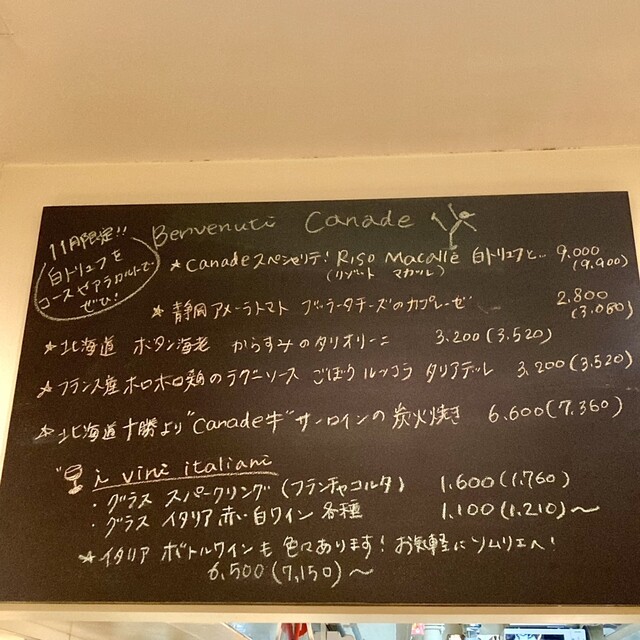 Benvenuti Canade
11月限定!!
白トリュフを
コースやアラカルトで
ぜひ!
★ Canadeスペシャリテ! Riso Macallè 白トリュフと... 9.000
(リゾット マカッレ) (9.900)
★ 静岡アメーラトマト ブッラータチーズのカプレーゼ 2.800
(3.080)
★ 北海道 ボタン海老 からすみのタリオリーニ 3.200(3.520)
★ フランス産ホロホロ鶏のラグーソース ごぼう ルッコラ タリアテッレ 3.200(3.520)
★ 北海道十勝より"Canade牛"サーロインの炭火焼き 6.600(7.360)
i vini italiani
・グラス スパークリング(フランチャコルタ) 1.600(1.760)
・グラス イタリア赤・白ワイン 各種 1.100(1.210)〜
★イタリア ボトルワインも色々あります! お気軽にソムリエへ!
6,500(7,150)〜